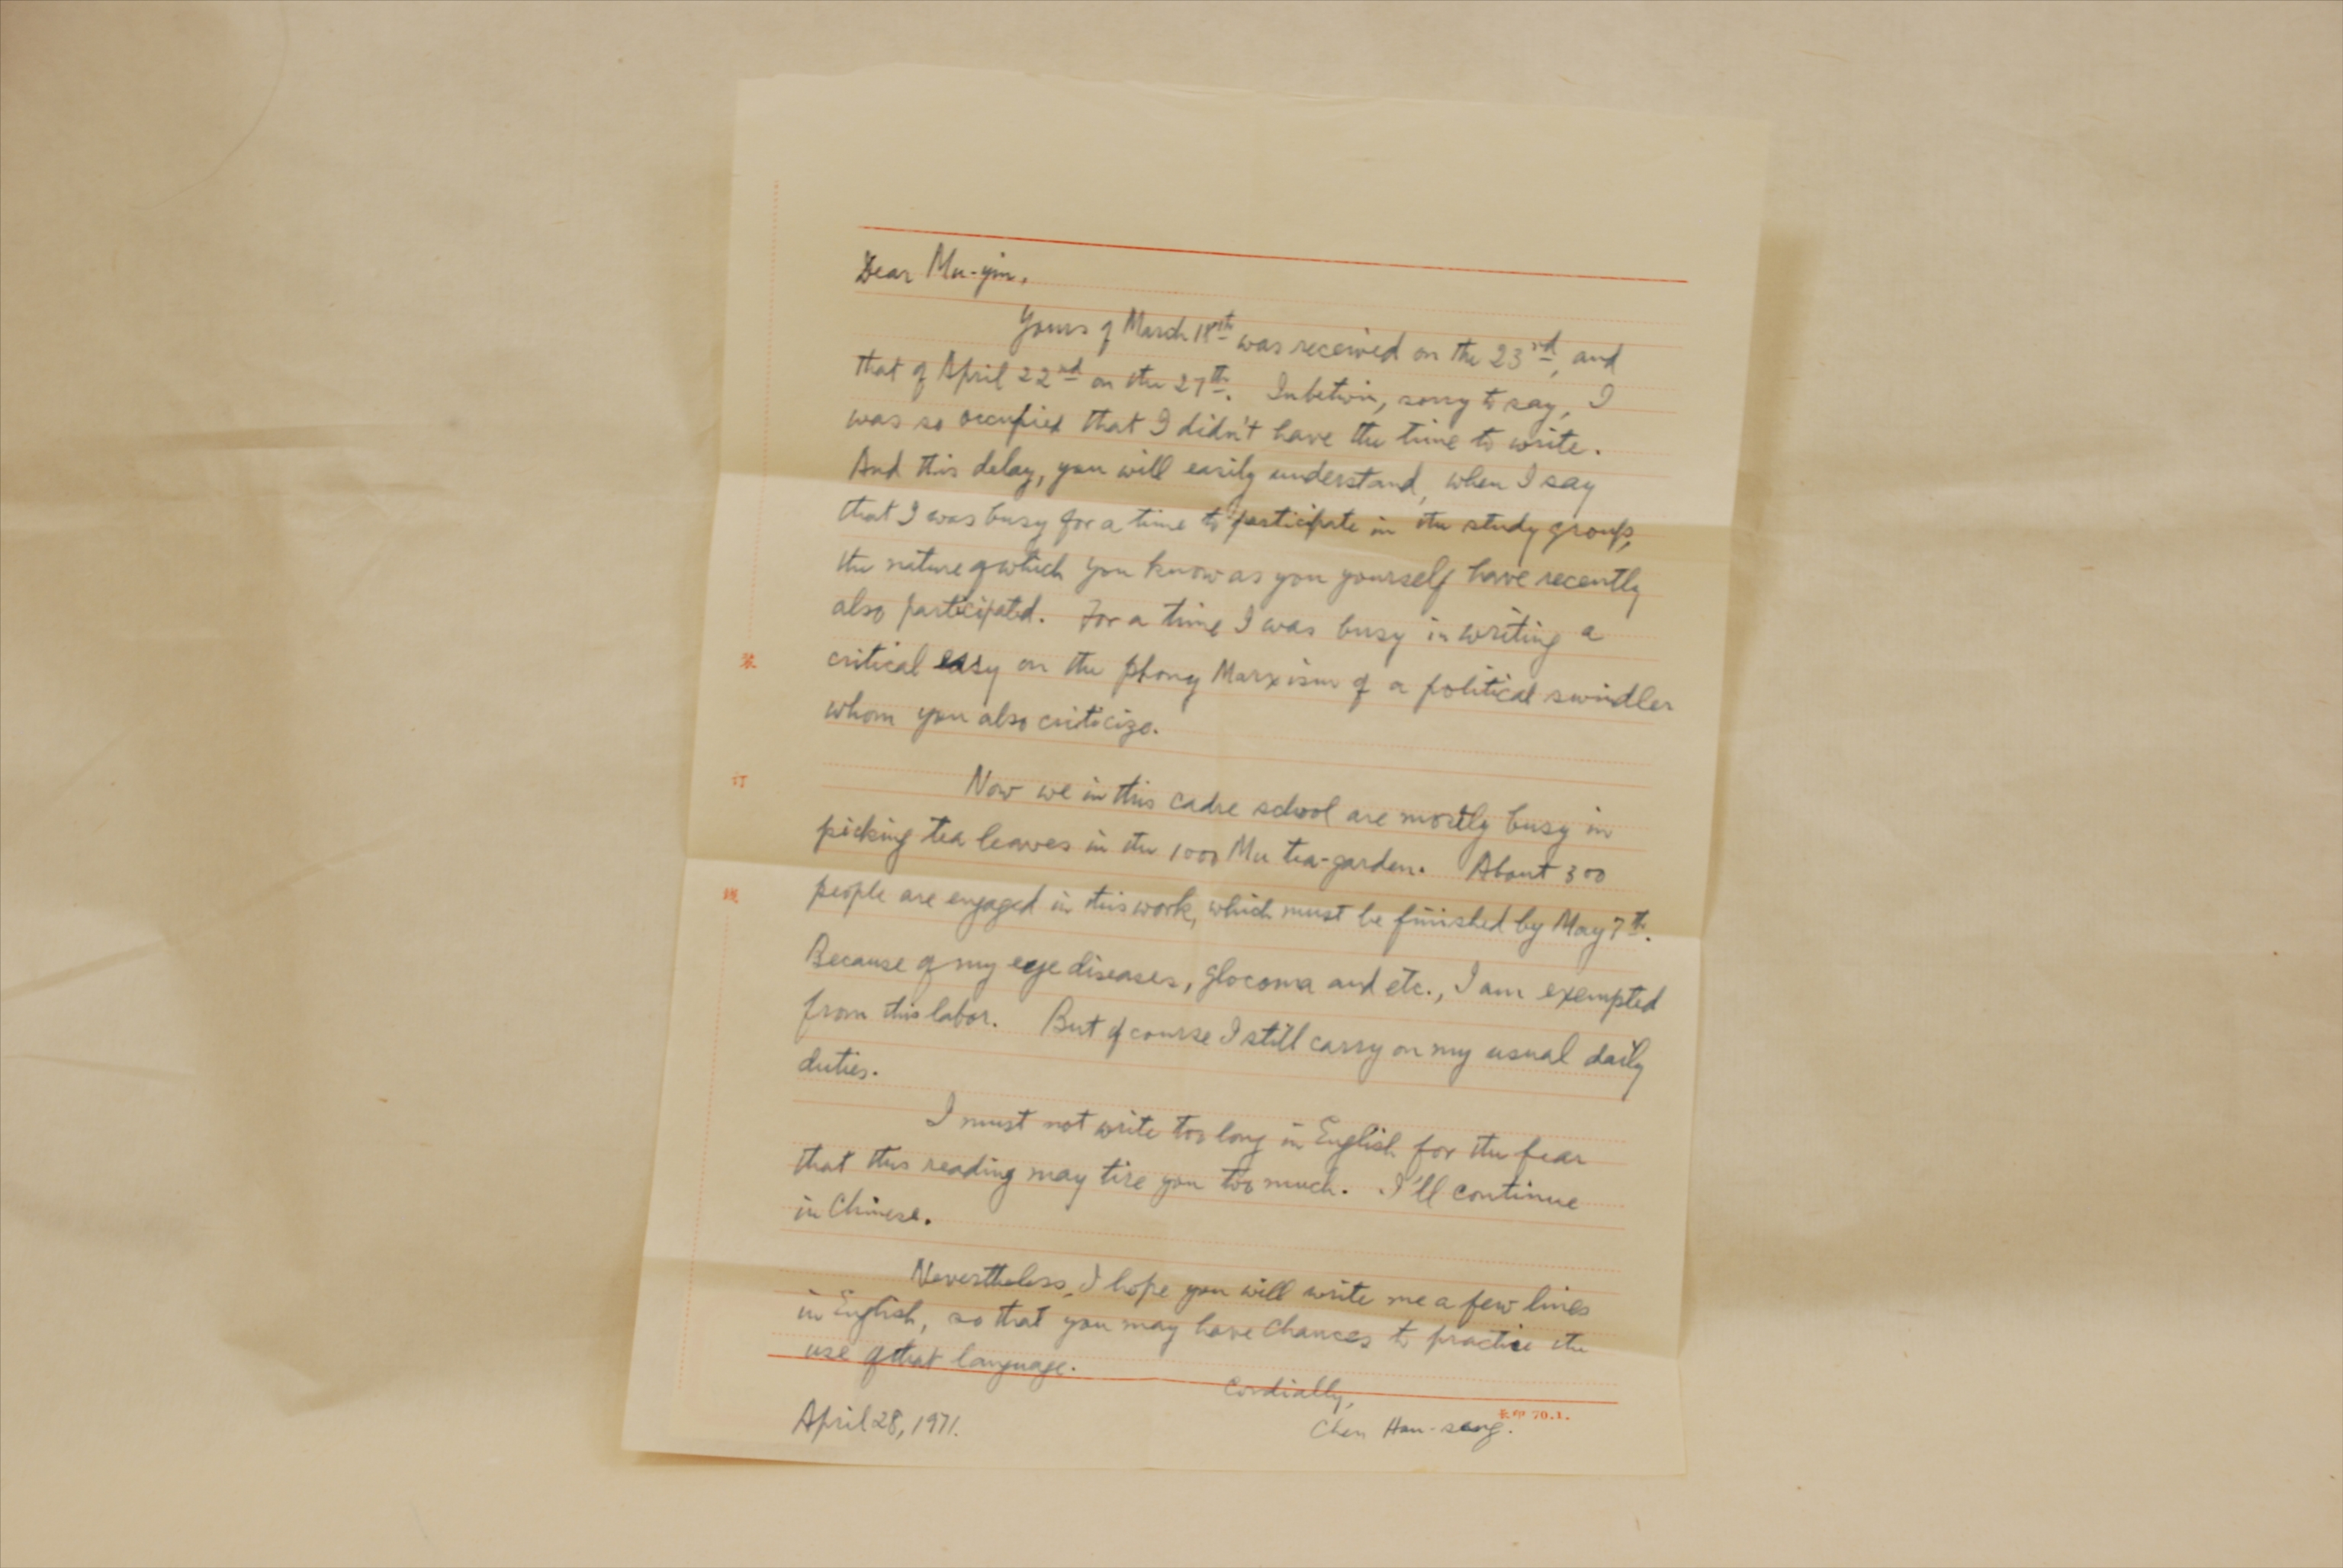 Dear Mu-yin,
Yours of March 18th was received on the 23rd, and
that of April 22nd on the 27th. Inbetwin, sorry to say, I
was so occupied that I didn't have the time to write.
And this delay, you will easily understand, when I say
that I was busy for a time to participate in the study group,
the nature of which you know as you yourself have recently
also participated. For a time I was busy in writing a
critical essy on the phony Marxism of a political swindler
whom you also criticize.
Now we in this cadre school are mostly busy in
picking tea leaves in the 1000 Mu tea-garden. About 300
people are engaged in this work, which must be finished by May 7th.
Because of my eye diseases, glocoma and etc., I am exempted
from this labor. But of course I still carry on my usual daily
duties.
I must not write too long in English for the fear
that this reading may tire you too much. I'll continue
in Chinese.
Nevertheless, I hope you will write me a few lines
in English, so that you may have chances to practice the
use of that language.
Cordially,
Chen Han-seng.
April 28, 1971.
装
订
线
长印 70.1.